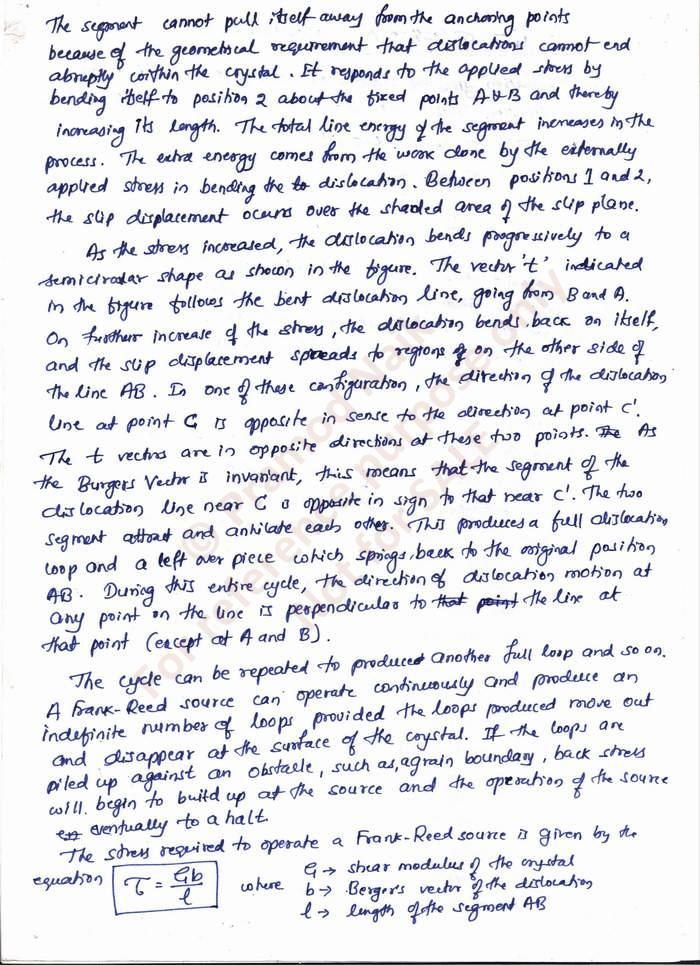 The segment cannot pull itself away from the anchoring points
because of the geometrical requirement that dislocations cannot end
abruptly within the crystal. It responds to the applied stress by
bending itself to position 2 about the fixed points A & B and thereby
increasing its length. The total line energy of the segment increases in the
process. The extra energy comes from the work done by the externally
applied stress in bending the to dislocation. Between positions 1 and 2,
the slip displacement occurs over the shaded area of the slip plane.
As the stress increased, the dislocation bends progressively to a
semicircular shape as shown in the figure. The vector 't' indicated
in the figure follows the bent dislocation line, going from B and A.
On further increase of the stress, the dislocation bends back on itself,
and the slip displacement spreads to regions on the other side of
the line AB. In one of these configuration, the direction of the dislocation
line at point C is opposite in sense to the direction at point C'.
The t vectors are in opposite directions at these two points. The As
the Burgers Vector is invariant, this means that the segment of the
dislocation line near C is opposite in sign to that near C'. The two
segment attract and anhilate each other. This produces a full dislocation
loop and a left over piece which springs back to the original position
AB. During this entire cycle, the direction of dislocation motion at
any point on the line is perpendicular to that point the line at
that point (except at A and B).
The cycle can be repeated to produced another full loop and so on.
A Frank-Reed source can operate continuously and produce an
indefinite number of loops provided the loops produced move out
and disappear at the surface of the crystal. If the loops are
piled up against an obstacle, such as, a grain boundary, back stress
will begin to build up at the source and the operation of the source
eventually to a halt.
The stress required to operate a Frank-Reed source is given by the
equation τ = Gb/l where G → shear modulus of the crystal
b → Berger's vector of the dislocation
l → length of the segment AB
© Pramod Naik
For reference purpose only
Not for SALE